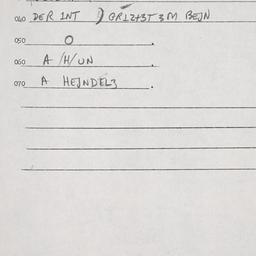 040 DER INT ) GRLZ+3T 3M BEJN
050 O .
060 A /H/UN .
070 A HEJNDEL3 .